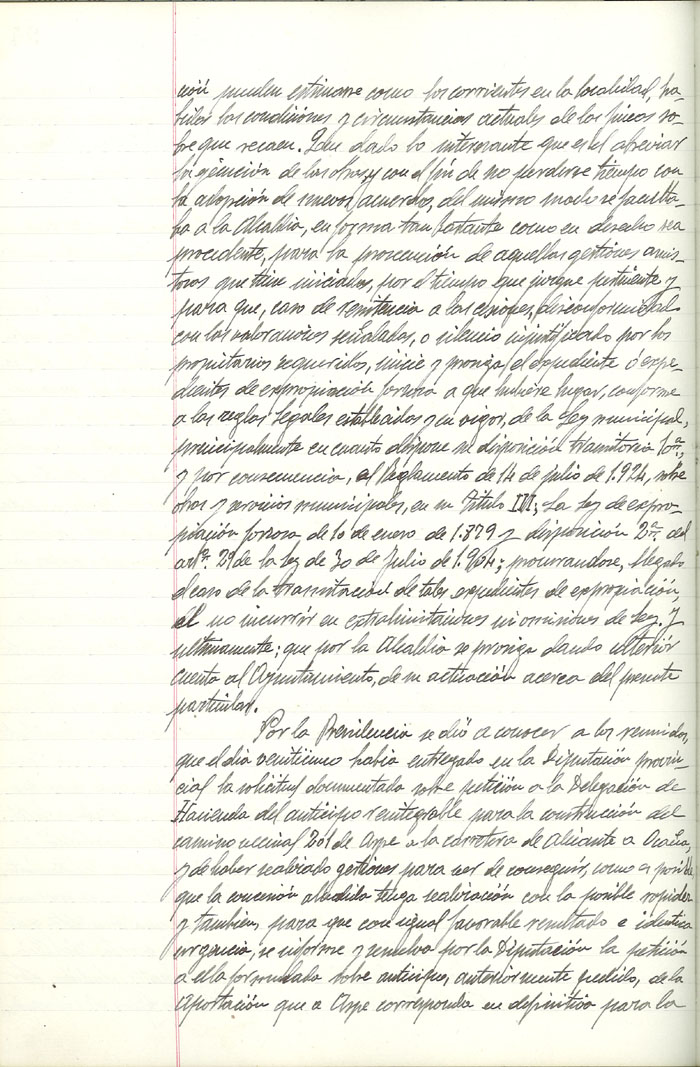 ción pueden estimarse como los corrientes en la localidad, ha-
bidas las condiciones y circunstancias actuales de las fincas so-
bre que recaen. Que dado lo interesante que es el abreviar
la ejecución de las obras y con el fin de no perderse tiempo con
la adopción de nuevos acuerdos, del mismo modo se faculta-
ba a la Alcaldia, en forma tan bastante como en derecho sea
procedente, para la prosecución de aquellas gestiones amis-
tosas que tiene iniciadas, por el tiempo que juzgue pertinente y
para que, caso de resistencia a las cesiones, disconformidad
con las valoraciones señaladas, o silencio injustificado por los
propietarios requeridos, inicie y prosiga el expediente o expe-
dientes de expropiación forzosa a que hubiere lugar, conforme
a las reglas legales establecidas y en vigor, de la Ley municipal,
principalmente en cuanto dispone su disposición transitoria 1ª,
y por consecuencia, el Reglamento de 14 de julio de 1.924, sobre
obras y servicios municipales, en su Titulo III; La Ley de expro-
piación forzosa, de 10 de enero de 1.879 y disposición 2ª. del
artº. 29 de la ley de 30 de Julio de 1.904; procurandose, llegado
el caso de la tramitación de tales expedientes de expropiación,
el no incurrir en extralimitaciones ni omisiones de Ley. Y
ultimamente; que por la Alcaldia se prosiga dando ulterior
cuenta al Ayuntamiento, de su actuación acerca del presente
particular.
Por la Presidencia se dió a conocer a los reunidos,
que el dia veintiuno habia entregado en la Diputación provin-
cial la solicitud documentada sobre petición a la Delegación de
Hacienda del anticipo reintegrable para la construcción del
camino vecinal 201 de Aspe a la carretera de Alicante a Ocaña,
y de haber realizado gestiones para ver de conseguir, como es posible
que la concesión aludida tenga realización con la posible rapidez
y tambien, para que con igual favorable resultado e identica
urgencia, se informe y resuelva por la Diputación la petición
a ella formulada sobre anticipo, anteriormente pedido, de la
aportación que a Aspe corresponda en definitiva para la